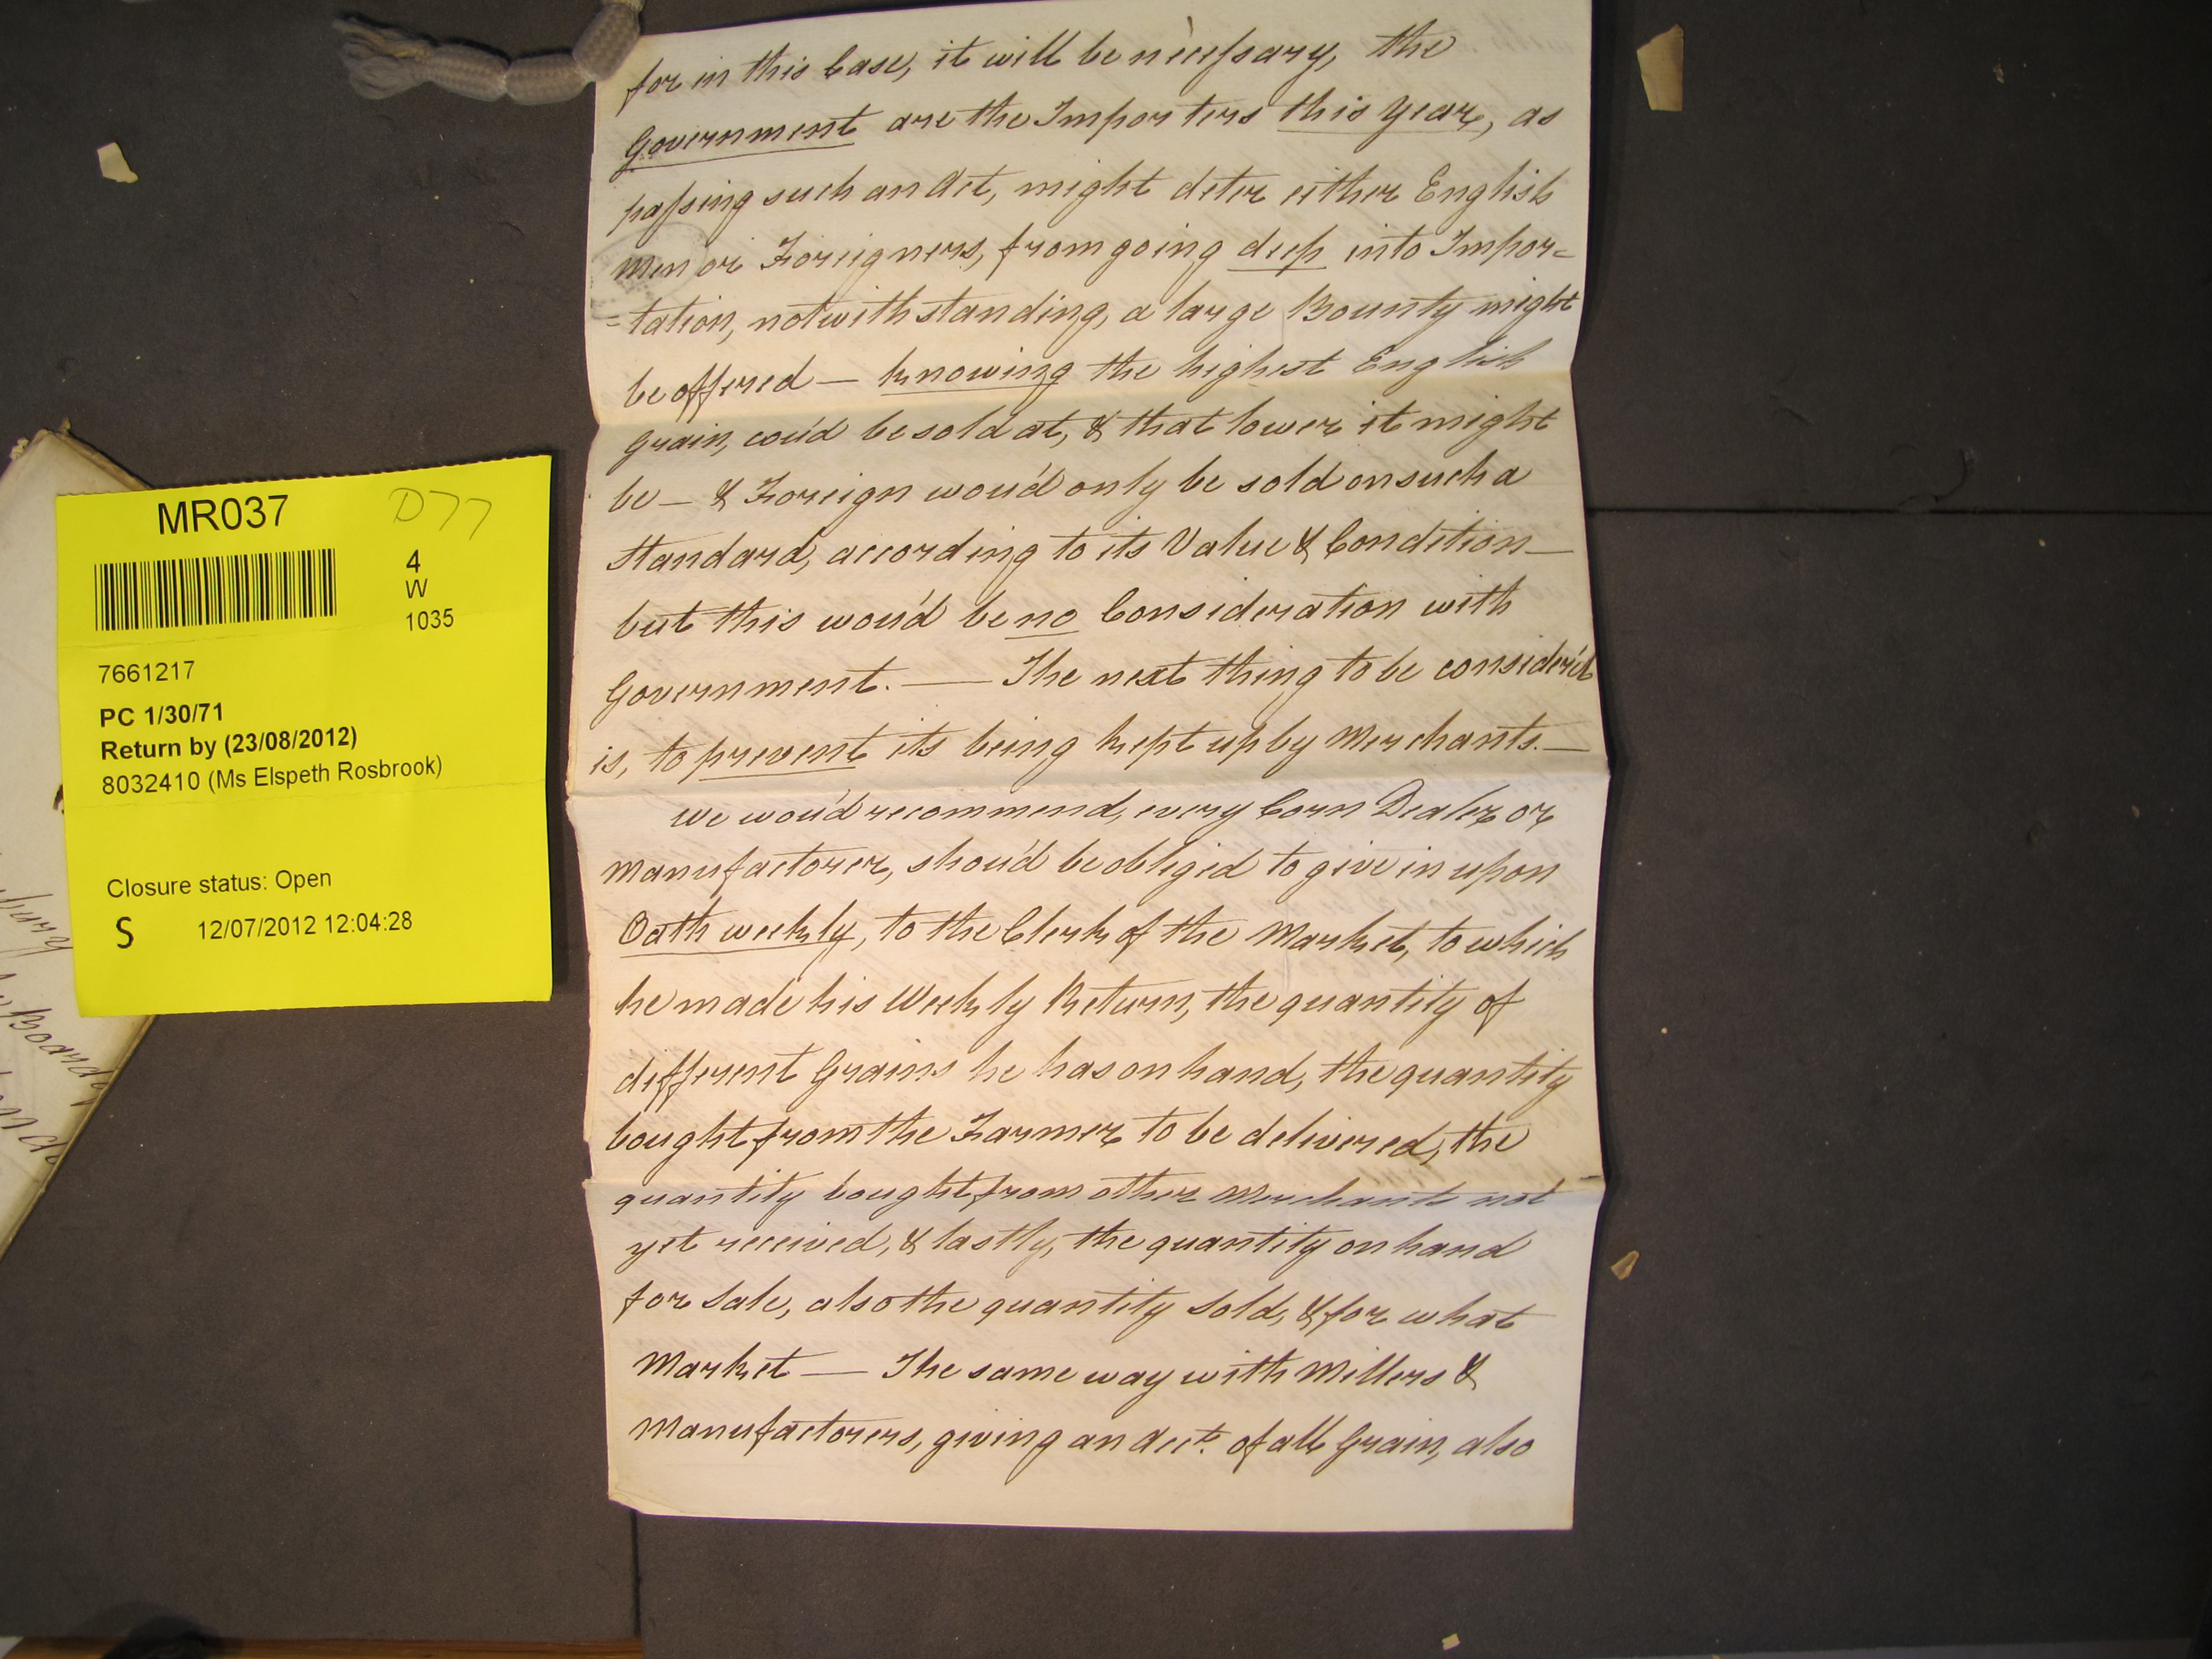 for in this Case, it will be necessary, the
Government are the Importers this Year, as
passing such an Act, might deter either English
Men or Foreigners, from going deep into Impor=
=tation, notwithstanding, a large Bounty might
be offered — knowing the highest English
grain, cou'd be sold at, & that lower it might
be — & Foreign wou'd only be sold on such a
Standard, according to its Value & Condition —
but this wou'd be no Consideration with
Government. — The next thing to be consider'd
is, to prevent its being kept up by Merchants. —
We wou'd recommend, every Corn Dealer or
Manufactorer, shou'd be obliged to give in upon
Oath weekly, to the Clerk of the Market, to which
he made his Weekly Return, the quantity of
different Grains he has on hand, the quantity
bought from the Farmer to be delivered, the
quantity bought from other Merchants not
yet received, & lastly, the quantity on hand
for Sale, also the quantity Sold, & for what
Market — The same way with Millers &
Manufactorers, giving an Acct. of all Grain, also
MR037
D77
4
W
1035
7661217
PC 1/30/71
Return by (23/08/2012)
8032410 (Ms Elspeth Rosbrook)
Closure status: Open
S 12/07/2012 12:04:28